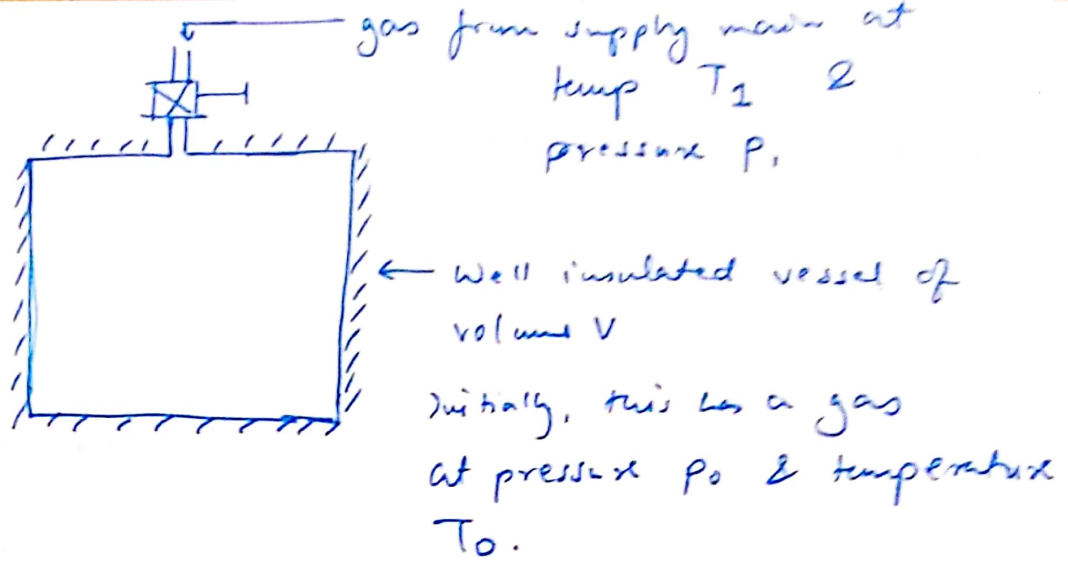 gas from supply main at
temp T1 &
pressure P1
Well insulated vessel of
volume V
Initially, this has a gas
at pressure Po & temperature
To.